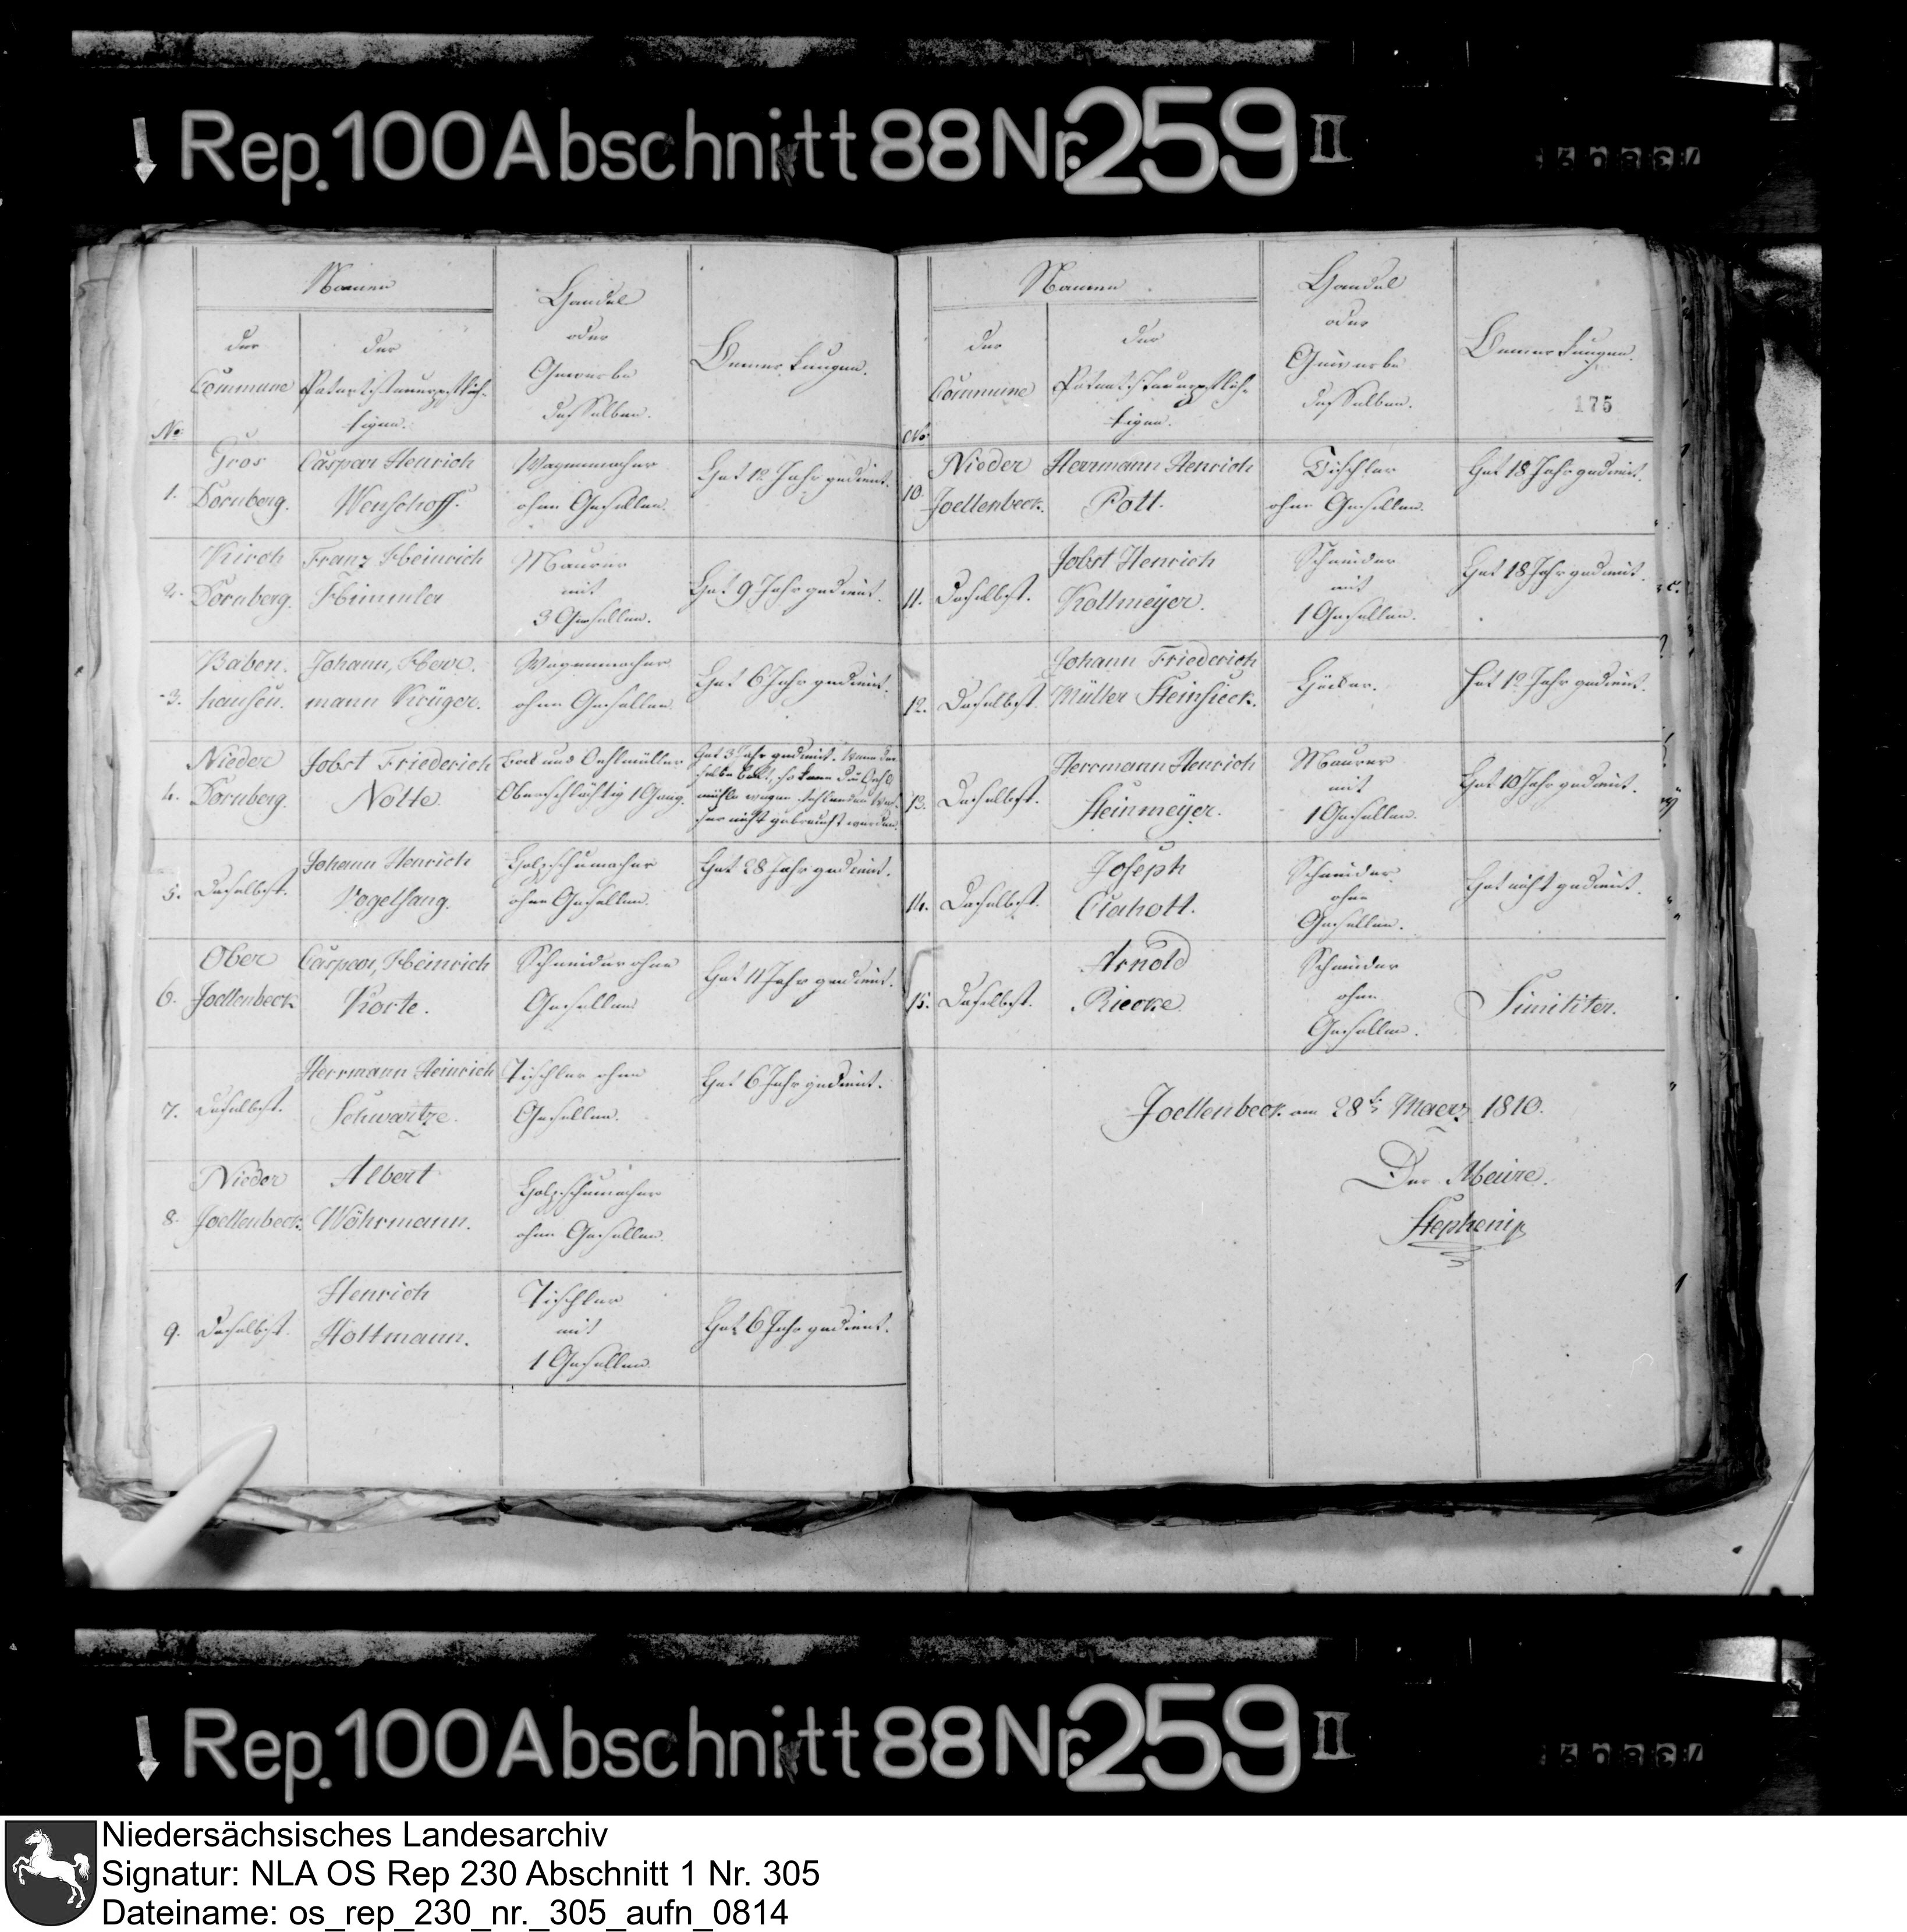 Rep. 100 Abschnitt 88 Nr. 259 II
Namen
der
Commune
der
Patentsteuerpflich-
tigen.
Handel
oder
Gewerbe
desselben.
Bemerkungen.
No
1.
Gros
Dornberg.
Caspar Henrich
Wenghoff.
Wagenmacher
ohne Gesellen.
Hat 12 Jahr gedient.
2.
Kirch
Dornberg.
Franz Heinrich
Himmler
Maurer
mit
3 Gesellen.
Hat 9 Jahr gedient.
3.
Baben-
hausen.
Johann, Herr-
mann Krüger.
Wagenmacher
ohne Gesellen
Hat 6 Jahr gedient.
4.
Nieder
Dornberg.
Jobst Friederich
Nolte
Bock und Oehlmüller
Oberschlächtig 1 Gang.
Hat 3 Jahr gedient. Wann die-
selbe bockt, so kann die Oehl-
mühle wegen fehlenden Was-
ser nicht gebraucht werden.
5.
Daselbst.
Johann Henrich
Vogelsang.
Holzschumacher
ohne Gesellen.
Hat 28 Jahr gedient.
6.
Ober
Joellenbeck
Caspar, Heinrich
Korte.
Schneider ohne
Gesellen
Hat 11 Jahr gedient.
7.
Daselbst.
Herrmann Heinrich
Schwartze.
Tischler ohne
Gesellen.
Hat 6 Jahr gedient.
8.
Nieder
Joellenbeck.
Albert
Wöhrmann.
Holzschumacher
ohne Gesellen.
9.
Daselbst.
Henrich
Holtmann.
Tischler
mit
1 Gesellen.
Hat 6 Jahr gedient.
Namen
der
Commune
der
Patentsteuerpflich-
tigen.
Handel
oder
Gewerbe
desselben.
Bemerkungen.
175
No
10.
Nieder
Joellenbeck.
Herrmann Henrich
Pott.
Tischler
ohne Gesellen.
Hat 18 Jahr gedient.
11.
Daselbst.
Jobst Henrich
Kollmeyer.
Schneider
mit
1 Gesellen.
Hat 18 Jahr gedient.
12.
Daselbst.
Johann Friederich
Müller Steinsieck.
Höcker.
Hat 12 Jahr gedient.
13.
Daselbst.
Herrmann Henrich
Steinmeyer.
Maurer
mit
1 Gesellen.
Hat 10 Jahr gedient.
14.
Daselbst.
Joseph
Schneider
ohne
Gesellen.
Hat nicht gedient.
15.
Daselbst.
Arnold
Riecke
Schneider
ohne
Gesellen.
Similiter.
Joellenbeck am 28t. Maerz 1810.
Der Maire.
Rep. 100 Abschnitt 88 Nr. 259 II
Niedersächsisches Landesarchiv
Signatur: NLA OS Rep 230 Abschnitt 1 Nr. 305
Dateiname: os_rep_230_nr._305_aufn_0814